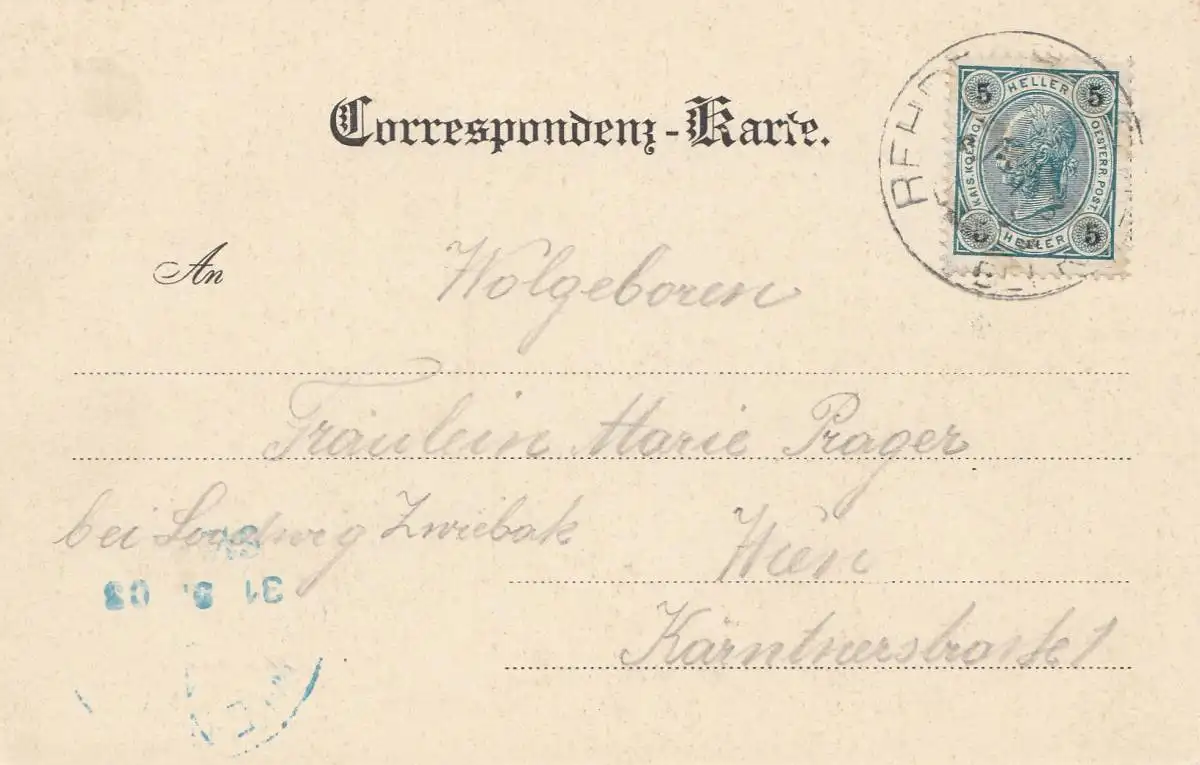 Correspondenz-Karte.
5 HELLER 5
KAIS. KÖNIGL. OESTERR. POST.
5 HELLER 5
An Wolgeboren
Fräulein Marie Prager
bei Zwiebak
Wien
Kärntnerstrasse 1
31 03